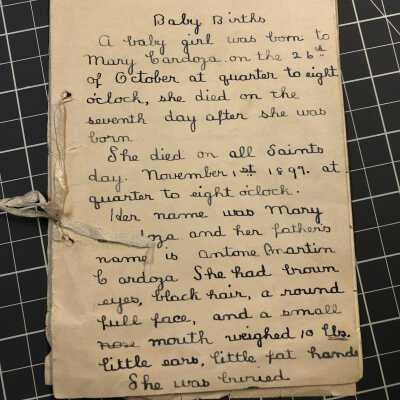 Baby Births
A baby girl was born to
Mary Cardoza on the 26th
of October at quarter to eight
o'clock, she died on the
seventh day after she was
born
She died on all Saints
day. November 1st 1897. at
quarter to eight o'clock.
Her name was Mary
oza and her fathers
name is Antone Martin
Cardoza She had brown
eyes, black hair, a round
full face, and a small
nose mouth weighed 10 lbs.
little ears, little fat hands
She was buried